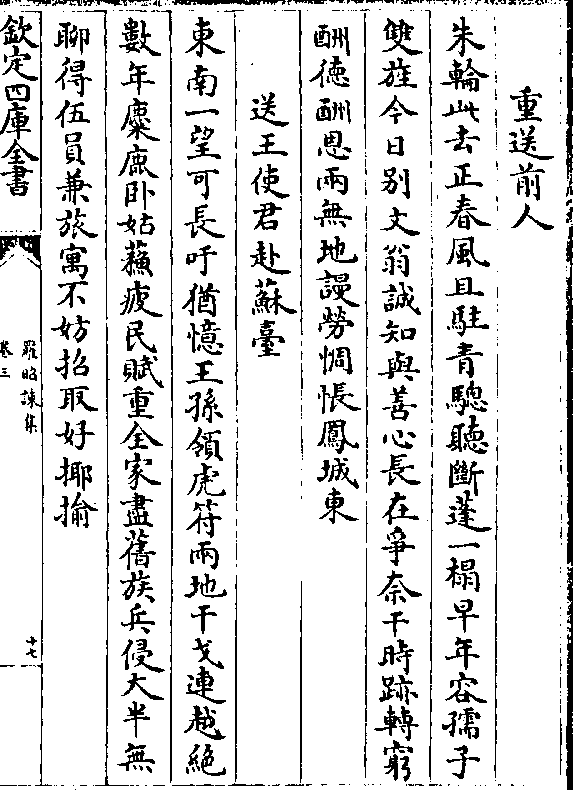 重送前人
朱輪此去正春風且駐青驄聽斷蓬一榻早年容孺子
雙旌今日别文翁誠知與善心長在爭奈干時跡轉窮
酬徳酬恩兩無地謾勞惆悵鳳城東
送王使君赴蘇臺
東南一望可長吁猶憶王孫領虎符兩地干戈連越絶
數年麋鹿卧姑蘓疲民賦重全家盡舊族兵侵大半無
聊得伍員兼旅寓不妨招取好揶揄
欽定四庫全書
羅昭諫集
卷三
十七